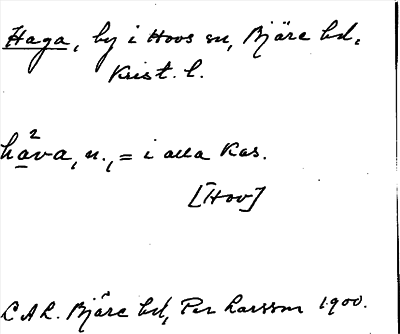 Haga, by i Hovs sn, Bjäre hd,
Krist. l.
hava, n., = i alla kas.
[Hov]
L A L. Bjäre hd, Per Larsson 1900.